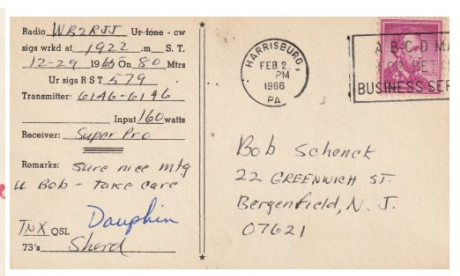 Radio WB2RJJ Ur fone - cw
sigs wrkd at 1922 .m S. T.
12-29 1965 On 80 Mtrs
Ur sigs R S T 579
Transmitter: 6146-6146
Input 160 watts
Receiver: Super Pro
Remarks: Sure nice mtg
u Bob - take care
Dauphin
TNX QSL
73's Sherd
HARRISBURG
FEB 2
PM
1966
PA.
A B C D M
BUSINESS SER
Bob Schenck
22 GREENWICH ST.
Bergenfield, N. J.
07621